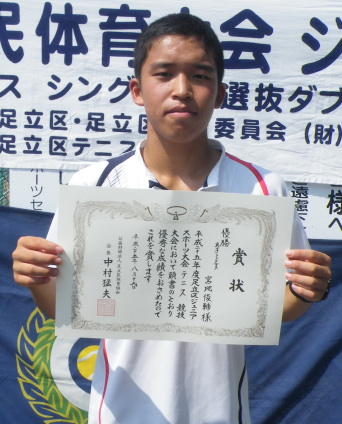 民体育大会 ジ
ス シング
選抜ダブ
足立区・足立
委員会 (財)
足立区テニス
賞状
優勝
宮地俊輔様
平成二十五年度足立区ジュニア
スポーツ大会 テニス 競技
大会において頭書のとおり
優秀な成績をおさめたので
これを賞します
平成二十五年八月
公益財団法人足立区体育協会
会長 中村猛夫
様へ
遠慮下